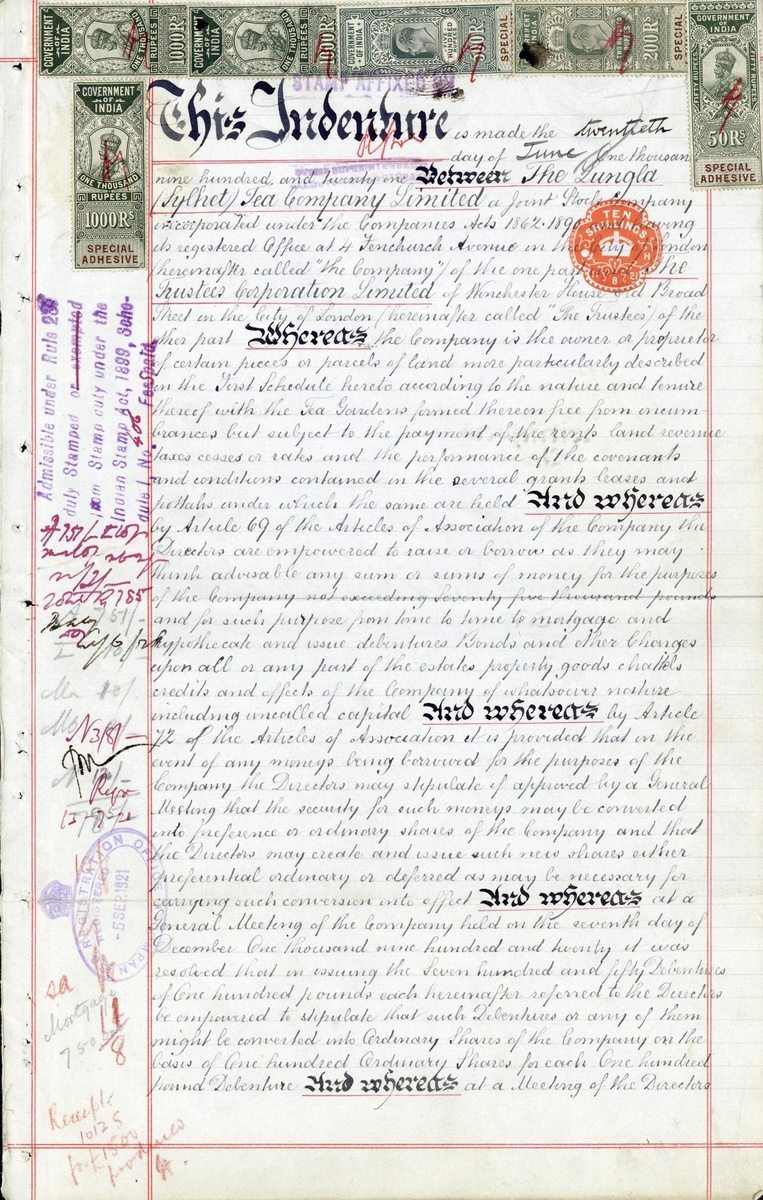 GOVERNMENT OF INDIA
ONE THOUSAND RUPEES
1000RS
GOVERNMENT OF INDIA
ONE THOUSAND RUPEES
GOVERNMENT OF INDIA
SPECIAL
200RS
SPECIAL
GOVERNMENT OF INDIA
FIFTY RUPEES
FIFTY RUPEES
50RS
SPECIAL
ADHESIVE
GOVERNMENT
OF
INDIA
ONE THOUSAND
RUPEES
1000RS
SPECIAL
ADHESIVE
STAMP AFFIXED
This Indenture is made the twentieth
day of June One thousand
nine hundred and twenty one Between The Lungla
(Sylhet) Tea Company Limited a Joint Stock Company
incorporated under the Companies Acts 1862-189 having
its registered Office at 4 Fenchurch Avenue in the City of London
hereinafter called "the Company") of the one part The
Trustees Corporation Limited of Winchester House Old Broad
Street in the City of London (hereinafter called "The Trustees") of the
other part Whereas the Company is the owner or proprietor
of certain pieces or parcels of land more particularly described
in the First Schedule hereto according to the nature and tenure
thereof with the Tea Gardens formed thereon free from incum-
brances but subject to the payment of the rents land revenue
taxes cesses or rates and the performance of the covenants
and conditions contained in the several grants leases and
pottahs under which the same are held And whereas
by Article 69 of the Articles of Association of the Company the
Directors are empowered to raise or borrow as they may
think advisable any sum or sums of money for the purposes
of the Company not exceeding Seventy five thousand pounds
and for such purpose from time to time to mortgage and
hypothecate and issue debentures Bonds and other Charges
upon all or any part of the estates property goods chattels
credits and effects of the Company of whatsoever nature
including uncalled capital And whereas by Article
72 of the Articles of Association it is provided that in the
event of any moneys being borrowed for the purposes of the
Company the Directors may stipulate if approved by a General
Meeting that the security for such moneys may be converted
into preference or ordinary shares of the Company and that
the Directors may create and issue such new shares either
preferential ordinary or deferred as may be necessary for
carrying such conversion into effect And whereas at a
General Meeting of the Company held on the seventh day of
December One thousand nine hundred and twenty it was
resolved that in issuing the Seven hundred and fifty Debentures
of One hundred pounds each hereinafter referred to the Directors
be empowered to stipulate that such Debentures or any of them
might be converted into Ordinary Shares of the Company on the
basis of One hundred Ordinary Shares for each One hundred
pound Debenture And whereas at a Meeting of the Directors
TEN
SHILLINGS
Admissible under Rule
duly Stamped or exempted
from Stamp duty under the
Indian Stamp Act, 1899, Sche-
dule I No. 40b Fees paid
N 3/8/-
REGISTRATION
REGISTERED
-5 SEP 1921
Mortgage
750
11
8
Receipt
10125
for £1500
produced